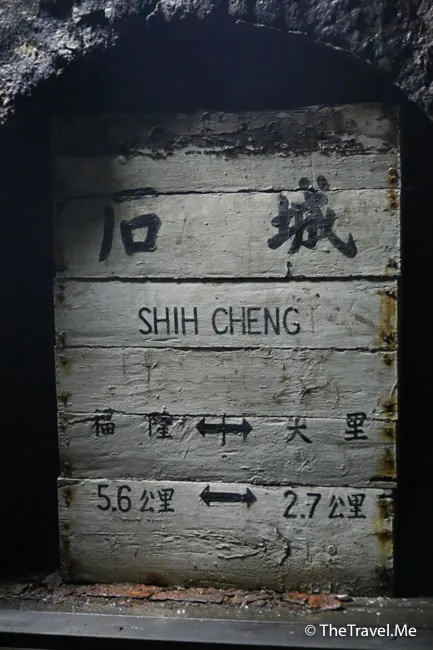 石城
SHIH CHENG
福隆 ↔ 大里
5.6公里 ↔ 2.7公里
© TheTravel.Me